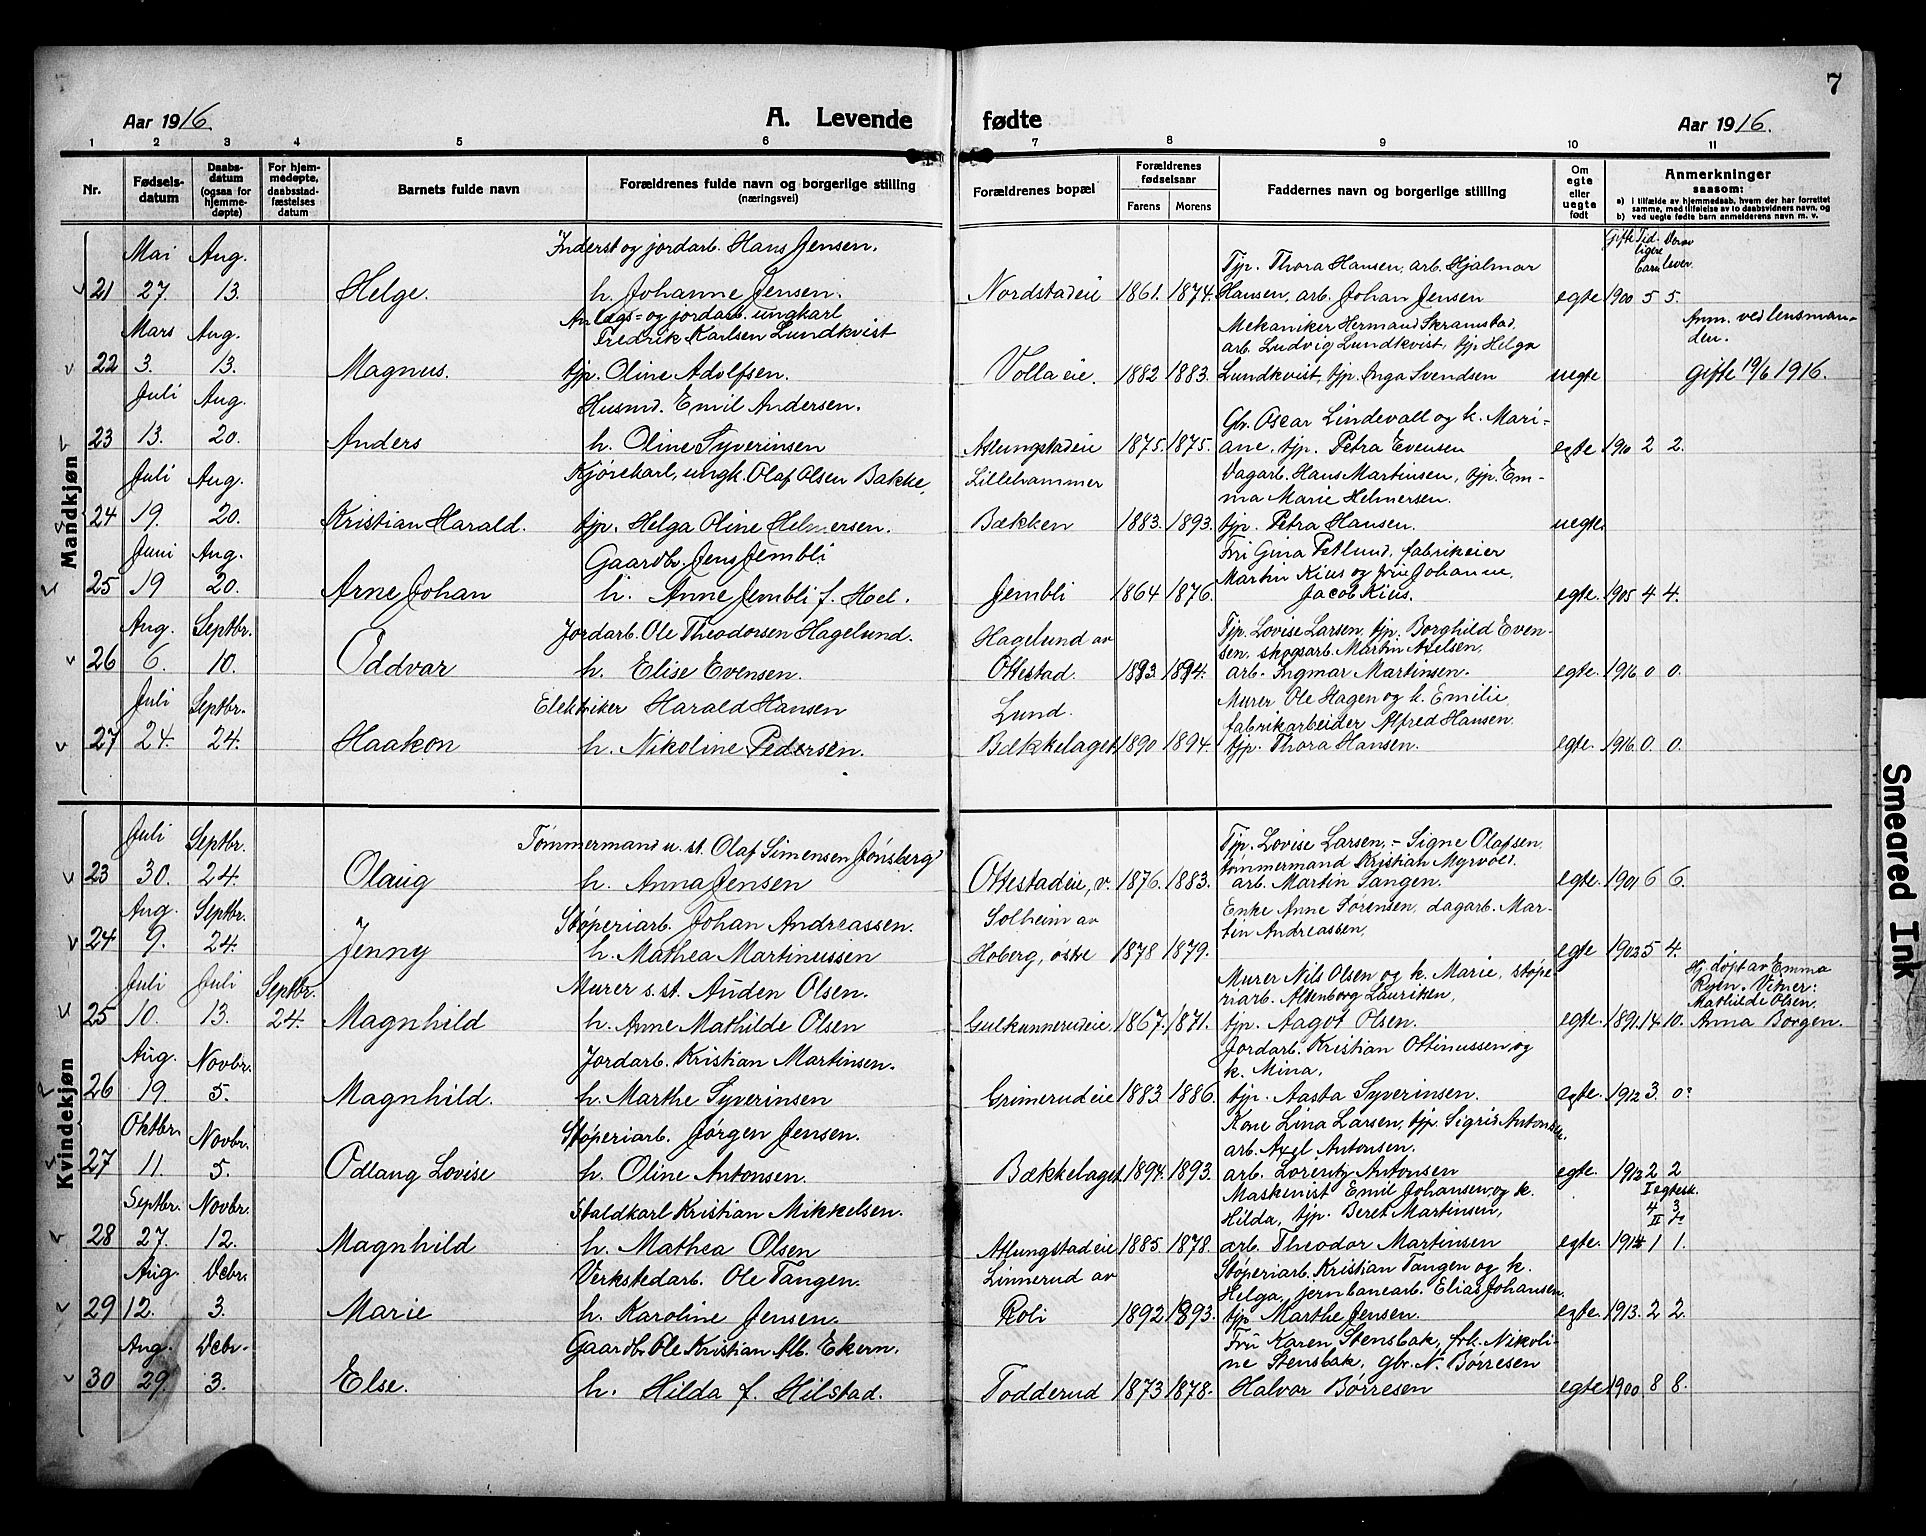 7
Aar 1916.
A. Levende fødte
Aar 1916.
1 2 3 4 5 6 7 8 9 10 11
Nr.
Fødsels-
datum
Daabs-
datum
(ogsaa for
hjemme-
døpte)
For hjem-
medøpte,
daabsstad-
fæstelses
datum
Barnets fulde navn
Forældrenes fulde navn og borgerlige stilling
(næringsvei)
Forældrenes bopæl
Forældrenes
fødselsaar
Farens Morens
Faddernes navn og borgerlige stilling
Om
egte
eller
uegte
født
Anmerkninger
saasom:
a) i tilfælde av hjemmedaab, hvem der har forrettet
samme, med tilføielse av to daabsvidners navn, og
b) ved uegte fødte barn anmelderens navn m. v.
Mandkjøn
Gifte Tid- Derav
ligere
barn lever
Mai Aug. Inderst og jordarb. Hans Jensen. Tjp. Thora Hansen, arb. Hjalmar
21 27. 13. Helge. h. Johanne Jensen. Nordstadeie 1861. 1874. Hansen, arb. Johan Jensen egte 1900 5 5.
Mars Aug. Anlægs- og jordarb. ungkarl
Fredrik Karlsen Lundkvist
Mekaniker Hermand Skramstad,
arb. Ludvig Lundkvist, tjp Helga
Anm. ved lensman-
den.
22 3. 13. Magnus. tjp. Oline Adolfsen. Volla eie. 1882 1883. Lundkvist, tjp. Inga Svendsen uegte gifte 19/6 1916.
Juli Aug. Husmd. Emil Andersen. Gbr. Oscar Lindevall og k. Mari-
23 13. 20. Anders h. Oline Syverinsen Atlungstadeie 1875. 1875. ane, tjp. Petra Evensen egte 1910 2 2.
Juli Aug. Kjørekarl, ungk. Olaf Olsen Bakke, Lillehammer Dagarb. Hans Martinsen, tjp. Em-
ma Marie Helmersen.
24 19. 20. Kristian Harald. tjp. Helga Oline Helmersen. Bækken 1883. 1893. tjp. Petra Hansen. uegte.
Juni Aug. Gaardbr. Jens Jembli. Fru Gina Petlund, fabrikeier
Martin Kius og frue Johanne,
25 19 20. Arne Johan h. Anne Jembli f. Hoel. Jembli 1864 1876. Jacob Kius. egte. 1905 4 4.
Aug. Septbr. Jordarb. Ole Theodorsen Hagelund. Hagelund av Tjp. Lovise Larsen, tjp. Borghild Even-
sen, skogsarb. Martin Axelsen,
26 6. 10. Oddvar h. Elise Evensen. Ottestad. 1893. 1894. arb. Ingmar Martinsen. egte. 1916 0 0.
Juli Septbr. Elektriker Harald Hansen Lund. Murer Ole Hagen og k. Emilie
fabrikarbeider Alfred Hansen.
27 24. 24. Haakon h. Nikoline Pedersen. Bækkelaget 1890 1894. tjp. Thora Hansen. egte. 1916 0. 0.
Kvindekjøn
Juli Septbr. Tømmermand u. st. Olaf Simensen Jønsberg Tjp. Lovise Larsen, - Signe Olafsen
tømmermand Kristian Myrvold.
23 30. 24. Olaug h. Anna Jensen Ottestadeie, v. 1876. 1883. arb. Martin Tangen. egte. 1901 6 6.
Aug. Septbr. Støperiarb. Johan Andreassen. Solheim av Enke Anne Sørensen, dagarb. Mar-
tin Andreassen,
24 9. 24. Jenny h. Mathea Martinussen Hoberg, østre 1878 1879. egte 1902 5 4.
Juli Juli Septbr. Murer s. st. Auden Olsen. Murer Nils Olsen og k. Marie, støpe-
riarb. Altenborg Lauritsen,
Hj. døpt av Emma
Ryen. Vitner:
Mathilde Olsen,
25 10. 13. 24. Magnhild h. Anne Mathilde Olsen Gulkunnerudeie 1867. 1871. tjp. Aagot Olsen. egte. 1891. 14 10. Anna Borgen.
Aug. Novbr. Jordarb. Kristian Martinsen. Jordarb. Kristian Ottinussen og
k. Mina,
26 19. 5. Magnhild. h. Marthe Syverinsen Grimerudeie 1883 1886. tjp. Aasta Syverinsen. egte. 1912 3. 0
Oktbr. Novbr. Støperiarb. Jørgen Jensen. Kone Lina Larsen, tjp. Sigrid Antonsen.
arb. Axel Antonsen.
27 11. 5. Odlaug Lovise h. Oline Antonsen. Bækkelaget 1894. 1893. arb. Lorentz Antonsen egte. 1912 2 2
Septbr. Novbr. Staldkarl Kristian Mikkelsen. Maskinist Emil Johansen og k.
Hilda, tjp. Beret Martinsen,
I egtesk.
4 3
II
28 27. 12. Magnhild h. Mathea Olsen Atlungstadeie 1885 1878. arb. Theodor Martinsen egte. 1914 1 1.
Aug. Debr. Verkstedarb. Ole Tangen. Linnerud av Støperiarb. Kristian Tangen og k.
Helga, jernbanearb. Elias Johansen.
29 12. 3. Marie h. Karoline Jensen. Roli 1892 1893. tjp Marthe Jensen. egte. 1913. 2 2.
Aug. Debr. Gaardbr. Ole Kristian Alb. Ekern. Fru Karen Stensbak, frk. Nikoli-
ne Stensbak, gbr. N. Børresen
30 29. 3. Else. h. Hilda f. Hilstad. Todderud 1873 1878. Halvor Børresen egte 1900 8 8.
Smeared Ink